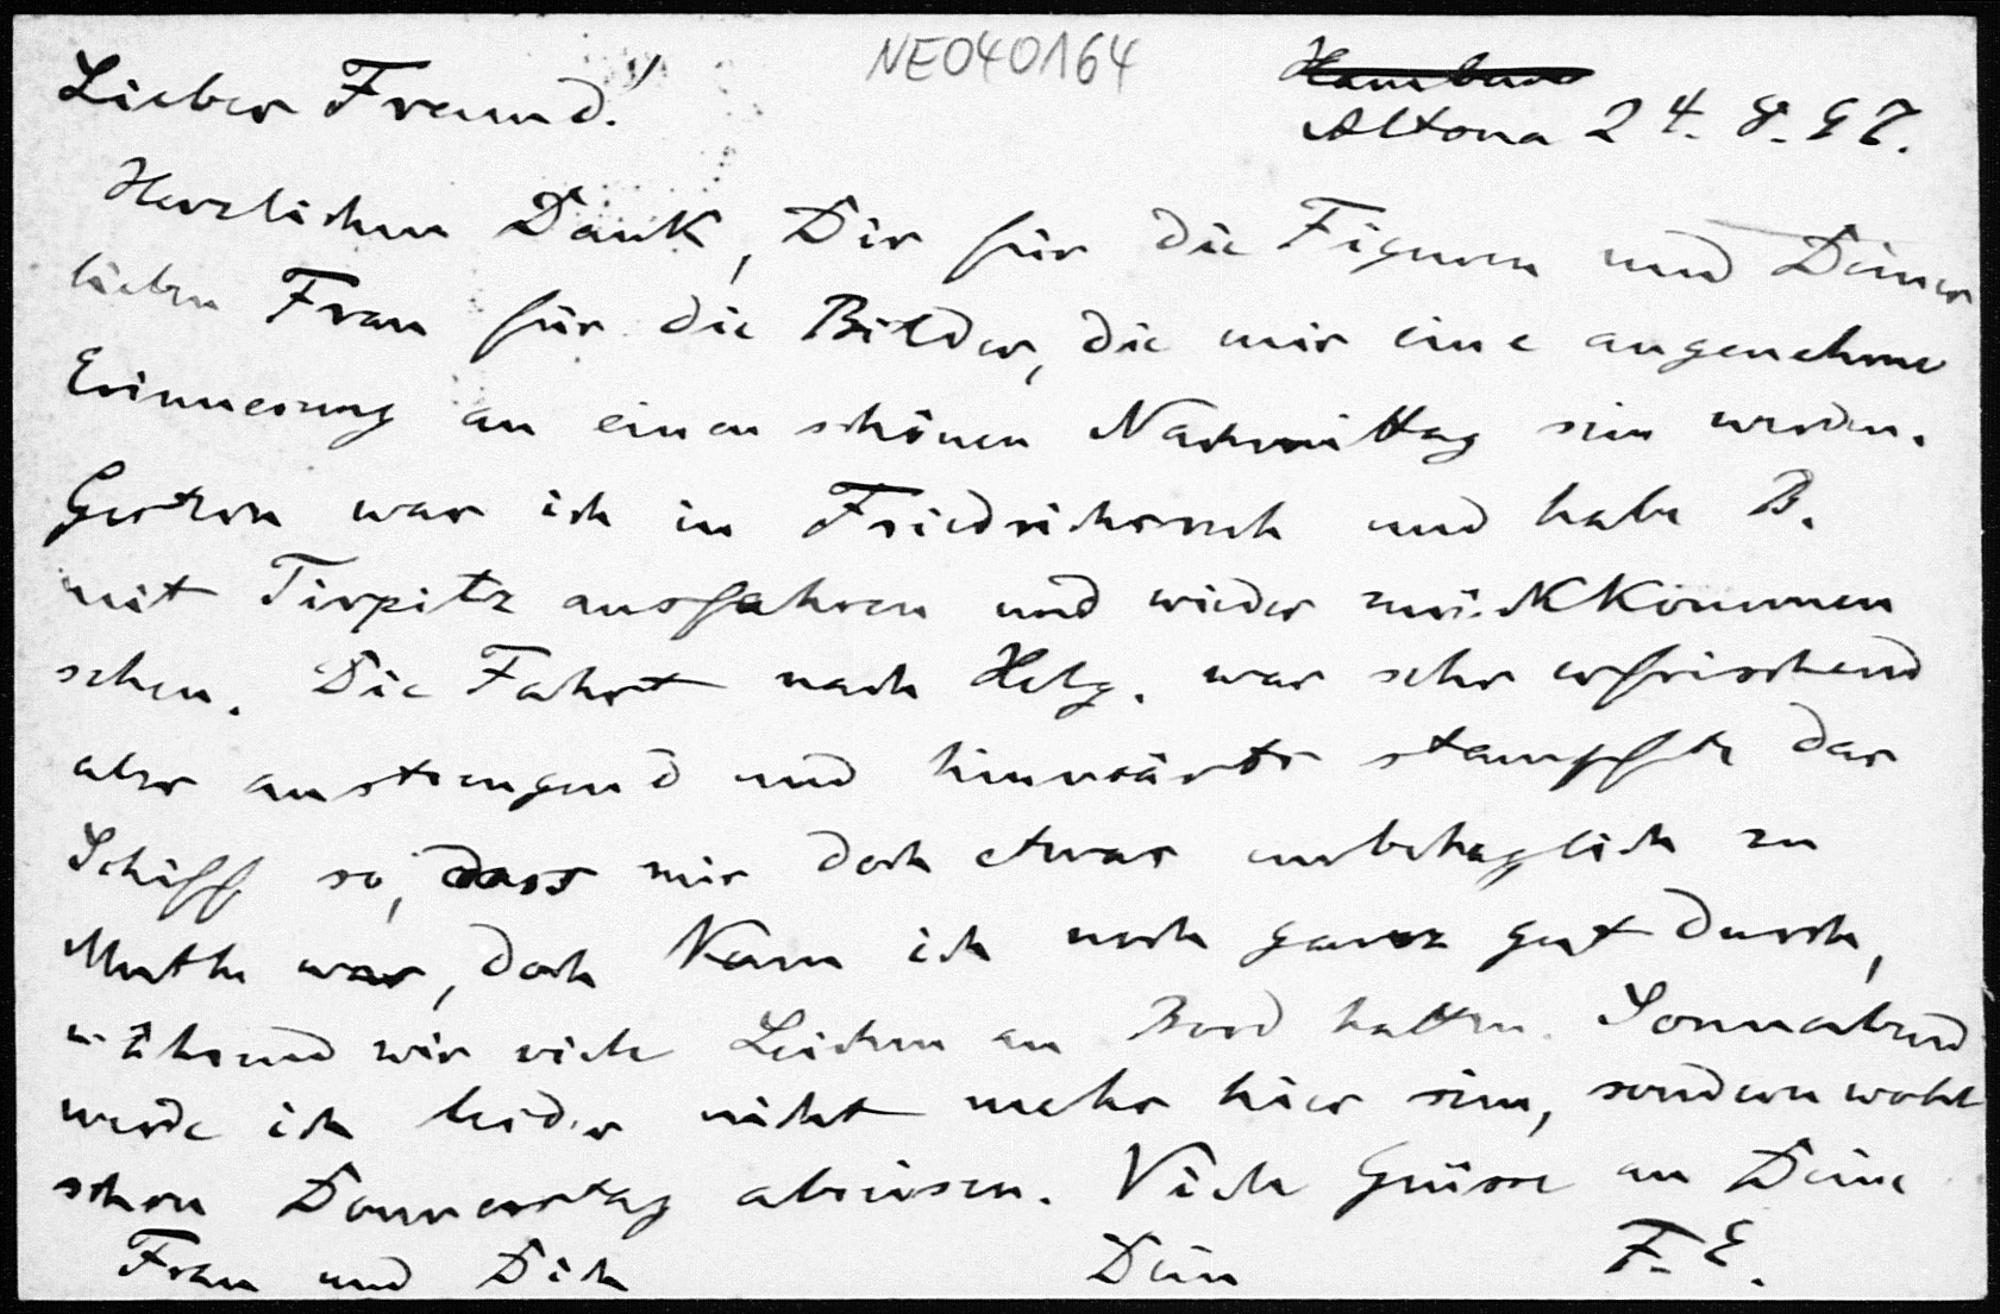 NE040164
Hamburg
Lieber Freund!
Altona 24. 8. 97.
Herzlichen Dank, Dir für die Figuren und Deiner
lieben Frau für die Bilder, die mir eine angenehme
Erinnerung an einen schönen Nachmittag sein werden.
Gestern war ich in Friedrichsruh und habe B.
mit Tirpitz ausfahren und wieder zurückkommen
sehen. Die Fahrt nach Helg. war sehr erfrischend
aber anstrengend und hinwärts stampfte das
Schiff so, dass mir doch etwas unbehaglich zu
Muthe war, doch kam ich noch ganz gut durch,
während wir viele Leichen an Bord hatten. Sonnabend
werde ich leider nicht mehr hier sein, sondern wohl
schon Donnerstag abreisen. Viele Grüsse an Deine
Frau und Dich Dein F. E.